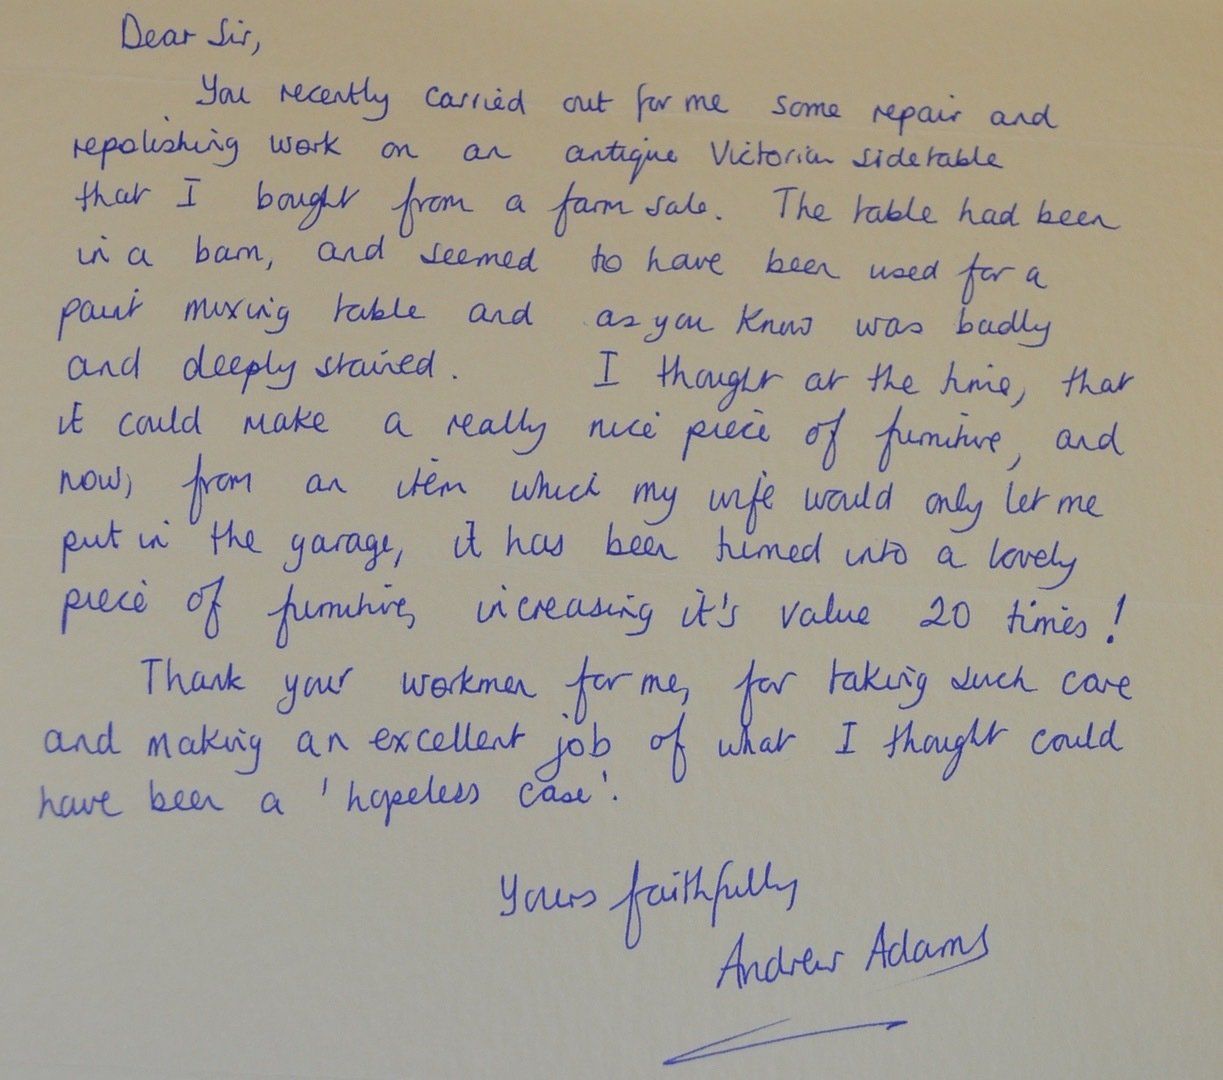 Dear Sir,
You recently carried out for me some repair and
repolishing work on an antique Victorian sidetable
that I bought from a farm sale. The table had been
in a barn, and seemed to have been used for a
paint mixing table and as you know was badly
and deeply stained. I thought at the time, that
it could make a really nice piece of furniture, and
now, from an item which my wife would only let me
put in the garage, it has been turned into a lovely
piece of furniture, increasing it's value 20 times!
Thank your workmen for me, for taking such care
and making an excellent job of what I thought could
have been a 'hopeless case'.
Yours faithfully
Andrew Adams